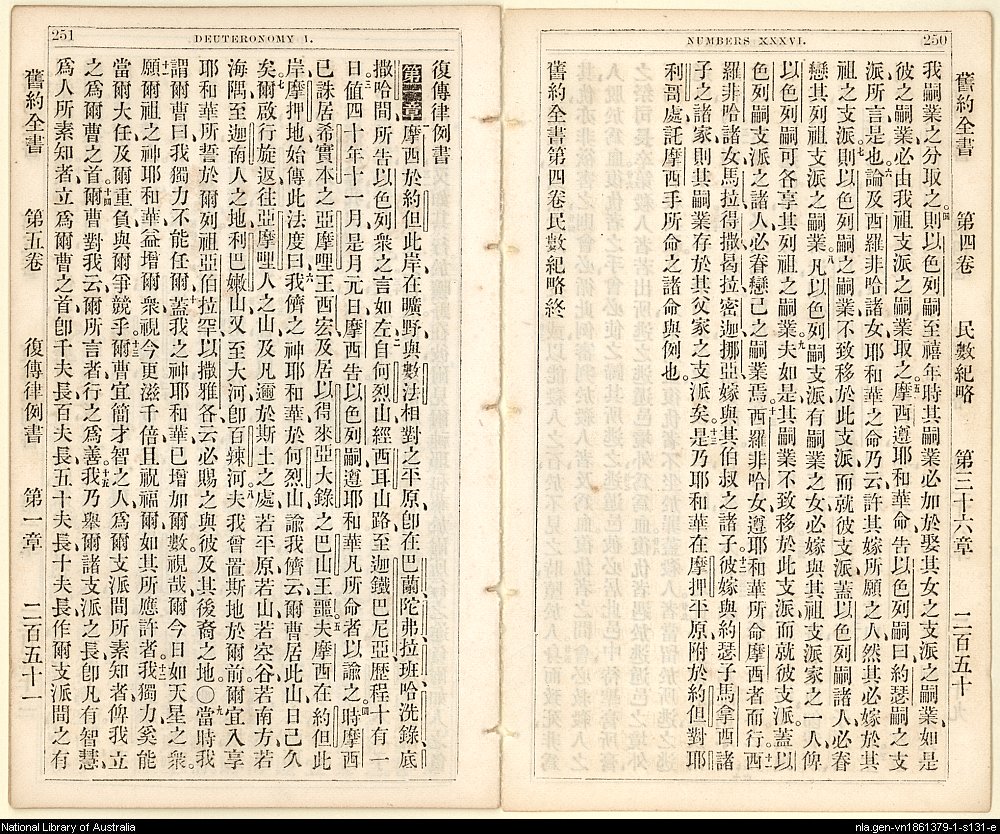 250
NUMBERS XXXVI.
舊約全書 第四卷 民數紀略 第三十六章 二百五十
我嗣業之分取之四則以色列嗣至禧年時其嗣業必加於娶其女之支派之嗣業如是
彼之嗣業必由我祖支派之嗣業取之五摩西遵耶和華命告以色列嗣曰約瑟嗣之支
派所言是也六論及西羅非哈諸女耶和華之命乃云許其嫁所願之人然其必嫁於其
祖之支派七則以色列嗣之嗣業不致移於此支派而就彼支派蓋以色列嗣諸人必眷
戀其列祖支派之嗣業八凡以色列嗣支派有嗣業之女必嫁與其祖支派家之一人俾
以色列嗣可各享其列祖之嗣業九夫如是其嗣業不致移於此支派而就彼支派蓋以
色列嗣支派之諸人必眷戀己之嗣業焉十西羅非哈女遵耶和華所命摩西者而行十一西
羅非哈諸女馬拉得撒曷拉密迦挪亞嫁與其伯叔之諸子十二彼嫁與約瑟子馬拿西諸
子之諸家則其嗣業存於其父家之支派矣十三是乃耶和華在摩押平原附於約但對耶
利哥處託摩西手所命之諸命與例也
舊約全書第四卷民數紀略終
251
DEUTERONOMY I.
復傳律例書
第壹章摩西於約但此岸在曠野與數法相對之平原卽在巴蘭陀弗拉班哈洗錄底
撒哈間所告以色列衆之言如左二自何烈山經西耳山路至迦鐵巴尼亞歷程十有一
日三値四十年十一月是月元日摩西告以色列嗣遵耶和華凡所命者以諭之四時摩西
已誅居希實本之亞摩哩王西宏及居以得來亞大錄之巴山王噩五夫摩西在約但此
岸摩押地始傳此法度曰六我儕之神耶和華於何烈山諭我儕云爾曹居此山日已久
矣七爾啟行旋返往亞摩哩人之山及凡邇於斯土之處若平原若山若空谷若南方若
海隅至迦南人之地利巴嫩山又至大河卽百辣河八夫我曾置斯地於爾前爾宜入享
耶和華所誓於爾列祖亞伯拉罕以撒雅各云必賜之與彼及其後裔之地〇九當時我
謂爾曹曰我獨力不能任爾十蓋我之神耶和華已增加爾數視哉爾今日如天星之衆
十一願爾祖之神耶和華益增爾衆視今更滋千倍且祝福爾如其所應許者十二我獨力奚能
當爾大任及爾重負與爾爭競乎十三爾曹宜簡才智之人爲爾支派間所素知者俾我立
之爲爾曹之首十四爾曹對我云爾所言者行之爲善十五我乃舉爾諸支派之長卽凡有智慧
爲人所素知者立爲爾曹之首卽千夫長百夫長五十夫長十夫長作爾支派間之有
舊約全書 第五卷 復傳律例書 第一章 二百五十一
National Library of Australia
nla.gen-vn1861379-1-s131-e